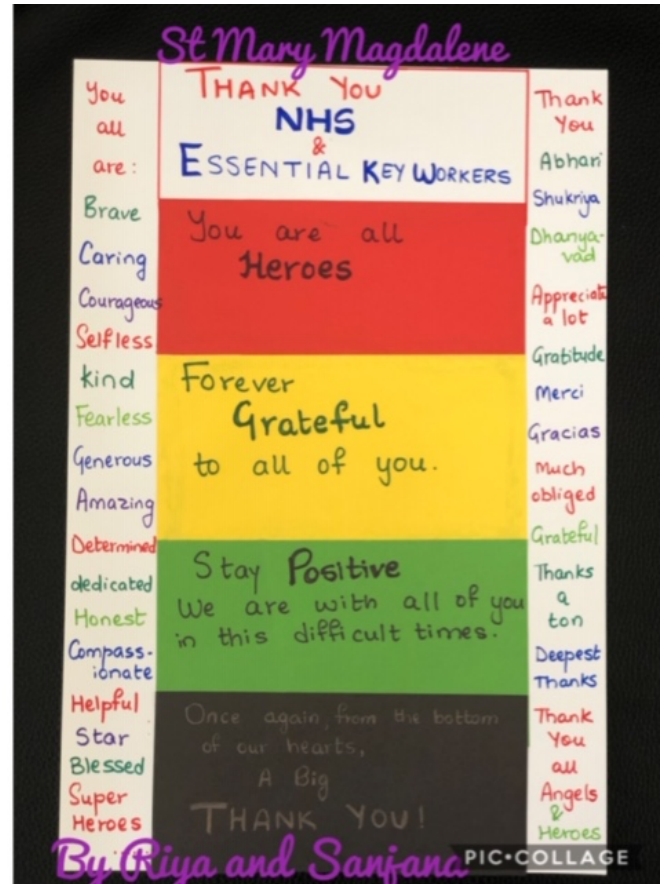 St Mary Magdalene
THANK YOU
NHS
&
ESSENTIAL KEY WORKERS
You
all
are:
Brave
Caring
Courageous
Selfless
kind
Fearless
Generous
Amazing
Determined
dedicated
Honest
Compass-
ionate
Helpful
Star
Blessed
Super
Heroes
You are all
Heroes
Forever
Grateful
to all of you.
Stay Positive
We are with all of you
in this difficult times.
Once again, from the bottom
of our hearts,
A Big
THANK YOU!
Thank
You
Abhari
Shukriya
Dhanya-
vad
Appreciate
a lot
Gratitude
Merci
Gracias
Much
obliged
Grateful
Thanks
a
ton
Deepest
Thanks
Thank
You
all
Angels
&
Heroes
By Riya and Sanjana
PIC•COLLAGE